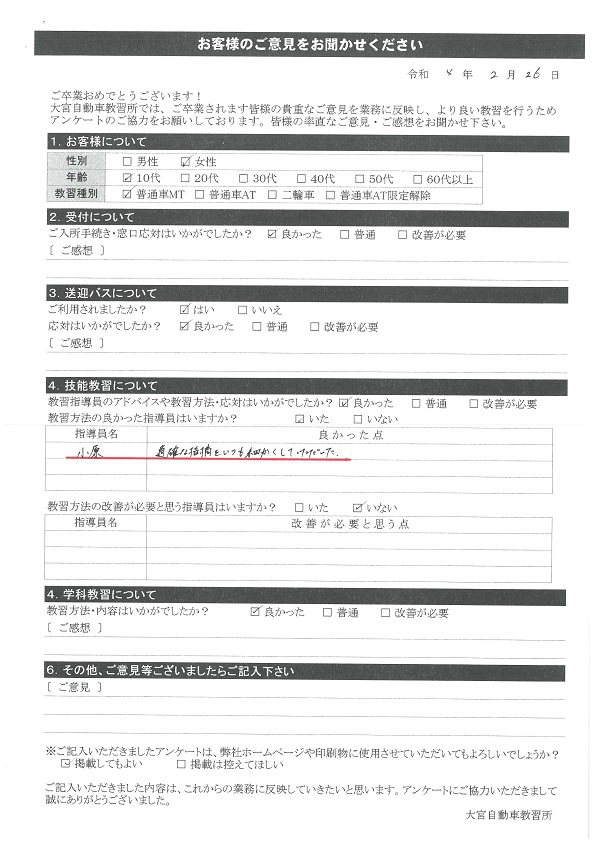 お客様のご意見をお聞かせください
令和 4 年 2 月 26 日
ご卒業おめでとうございます！
大宮自動車教習所では、ご卒業されます皆様の貴重なご意見を業務に反映し、より良い教習を行うため
アンケートのご協力をお願いしております。皆様の率直なご意見・ご感想をお聞かせ下さい。
1. お客様について
性別 □ 男性 ☑ 女性
年齢 ☑ 10代 □ 20代 □ 30代 □ 40代 □ 50代 □ 60代以上
教習種別 ☑ 普通車MT □ 普通車AT □ 二輪車 □ 普通車AT限定解除
2. 受付について
ご入所手続き・窓口応対はいかがでしたか？ ☑ 良かった □ 普通 □ 改善が必要
〔 ご感想 〕
3. 送迎バスについて
ご利用されましたか？ ☑ はい □ いいえ
応対はいかがでしたか？ ☑ 良かった □ 普通 □ 改善が必要
〔 ご感想 〕
4. 技能教習について
教習指導員のアドバイスや教習方法・応対はいかがでしたか？ ☑ 良かった □ 普通 □ 改善が必要
教習方法の良かった指導員はいますか？ ☑ いた □ いない
指導員名 良かった点
小原 適確な指摘をいつも細かくしていただいた.
教習方法の改善が必要と思う指導員はいますか？ □ いた ☑ いない
指導員名 改善が必要と思う点
4. 学科教習について
教習方法・内容はいかがでしたか？ ☑ 良かった □ 普通 □ 改善が必要
〔 ご感想 〕
6. その他、ご意見等ございましたらご記入下さい
〔 ご意見 〕
※ご記入いただきましたアンケートは、弊社ホームページや印刷物に使用させていただいてもよろしいでしょうか？
☑ 掲載してもよい □ 掲載は控えてほしい
ご記入いただきました内容は、これからの業務に反映していきたいと思います。アンケートにご協力いただきまして
誠にありがとうございました。
大宮自動車教習所